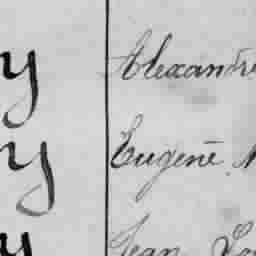 y Alexandre
y Eugène
y Jean